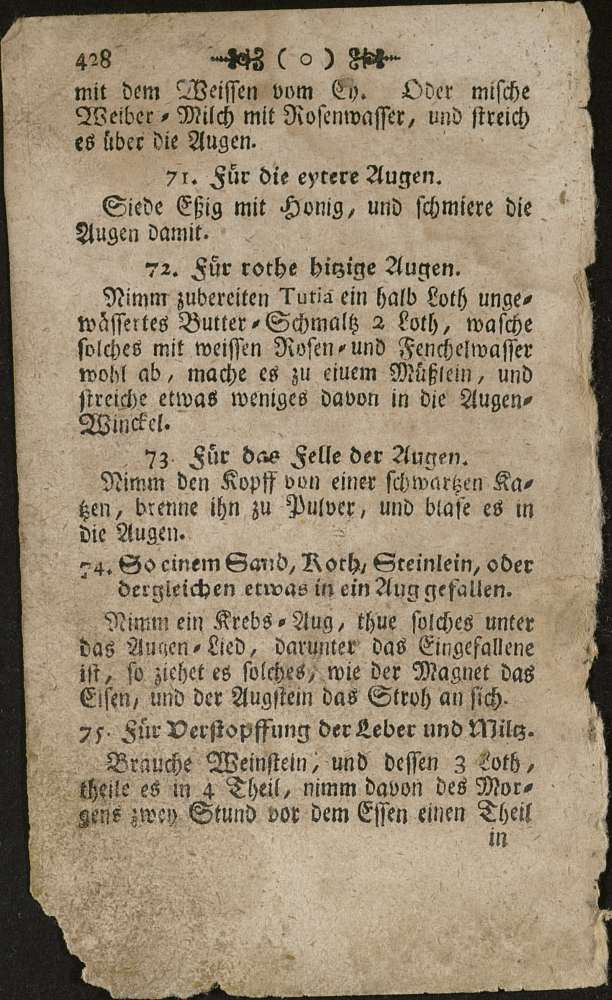 428 ( o )
mit dem Weissen vom Ey. Oder mische
Weiber-Milch mit Rosenwasser, und streich
es über die Augen.
71. Für die eytere Augen.
Siede Eßig mit Honig, und schmiere die
Augen damit.
72. Für rothe hitzige Augen.
Nimm zubereiten Tutia ein halb Loth unge-
wässertes Butter-Schmaltz 2 Loth, wasche
solches mit weissen Rosen-und Fenchelwasser
wohl ab, mache es zu eiuem Müßlein, und
streiche etwas weniges davon in die Augen-
Winckel.
73. Für das Felle der Augen.
Nimm den Kopff von einer schwartzen Ka-
tzen, brenne ihn zu Pulver, und blase es in
die Augen.
74. So einem Sand, Koth, Steinlein, oder
dergleichen etwas in ein Aug gefallen.
Nimm ein Krebs-Aug, thue solches unter
das Augen-Lied, darunter das Eingefallene
ist, so ziehet es solches, wie der Magnet das
Eisen, und der Augstein das Stroh an sich.
75. Für Verstopffung der Leber und Miltz.
Brauche Weinstein, und dessen 3 Loth,
theile es in 4 Theil, nimm davon des Mor-
gens zwey Stund vor dem Essen einen Theil
in